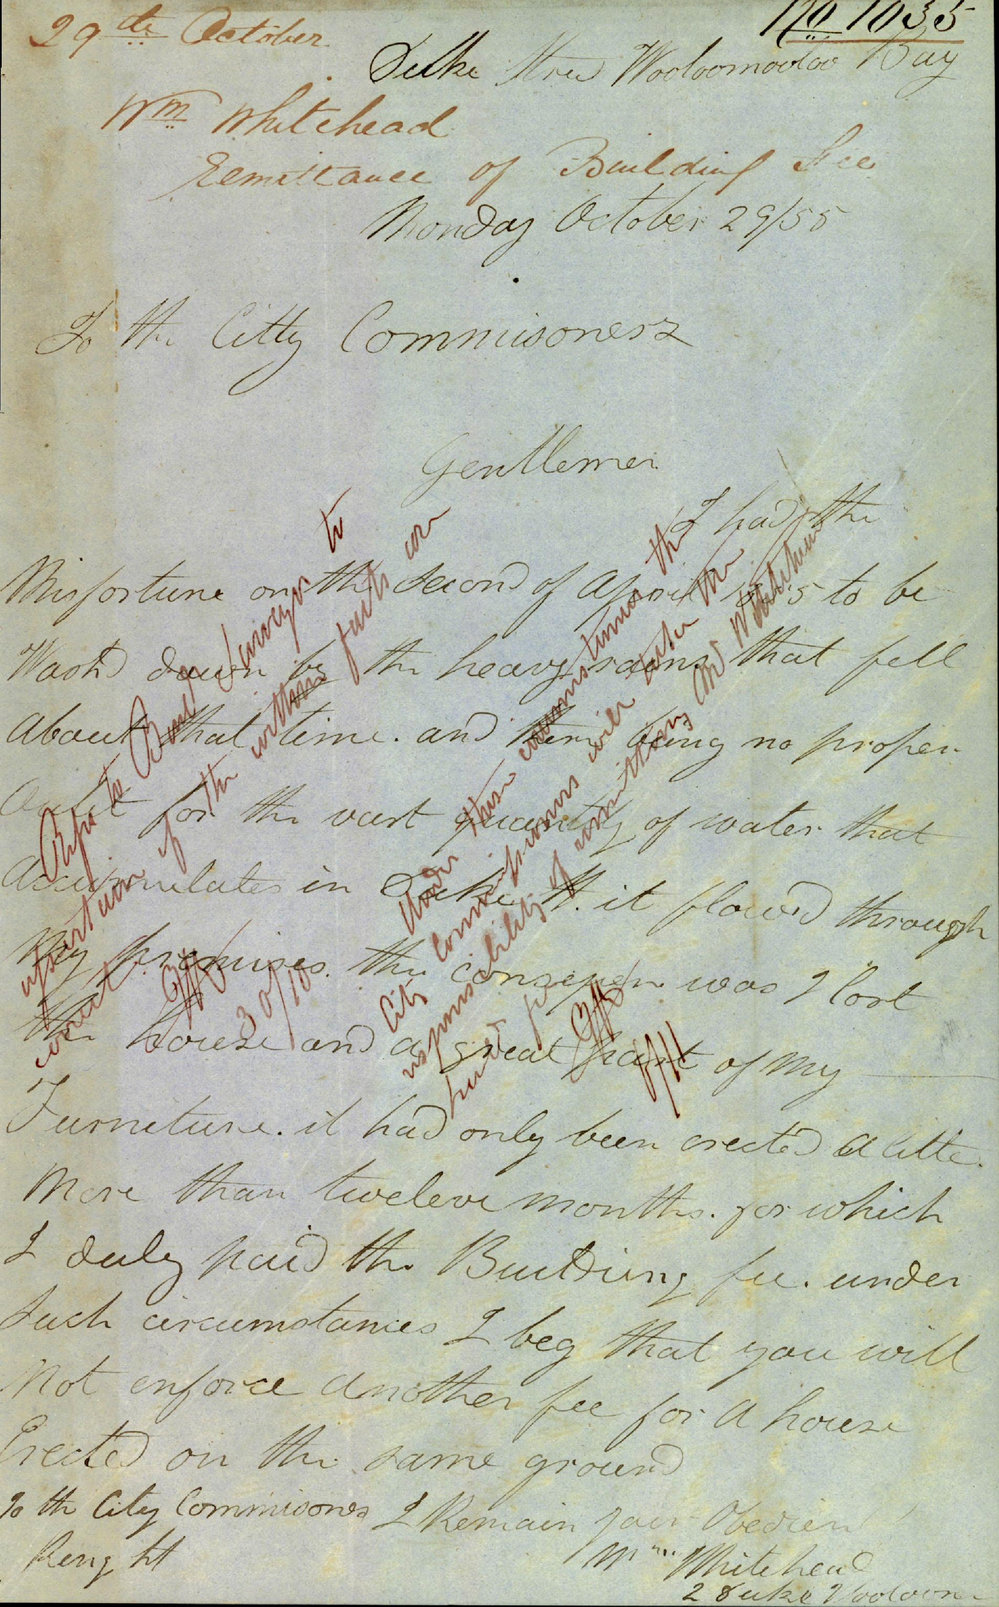 No 1035
29th October
Duke Street Wooloomooloo Bay
Wm Whitehead
Remittance of Building Fee
Monday October 29/55
To the Citty Commisoners
Gentlemen
I had the
Misfortune on the Second of April 1855 to be
Wash'd down by the heavy rains that fell
About that time. and there being no proper
Outlet for the vast quantity of water that
Accumulates in Duke St. it flow'd through
My premises. the consequen was I lost
the house and a great part of My
Furneture. it had only been erected a little
More than twelve months. for which
I duly paid the Building fee. under
Such circumstances I beg that you will
Not enforce another fee for a house
Erected on the same ground
To the City Commisoners I Remain your Obedien
Wm Whitehead
2 Duke Wooloom
Refer to Build Surveyor to
ascertain if the within facts are
correct
30/10
Under these circumstances the
City Commissioners will take the
responsibility of remitting Mr Whitehead
8/11